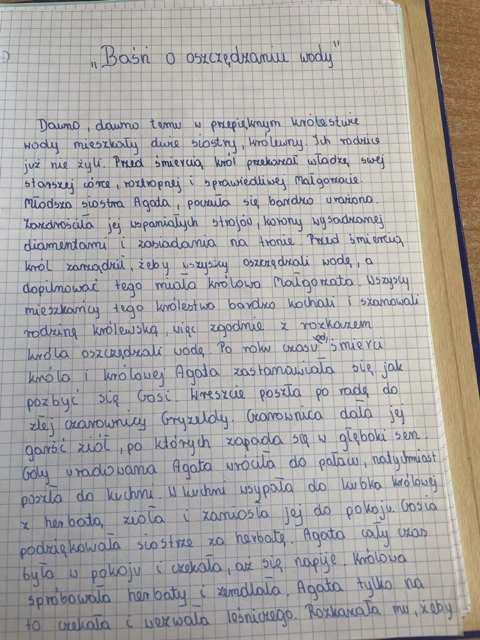 „Baśń o oszczędzaniu wody"
Dawno, dawno temu w przepięknym królestwie
wody mieszkały dwie siostry, królewny. Ich rodzice
już nie żyli. Przed śmiercią król przekazał władzę swej
starszej córce, roztropnej i sprawiedliwej Małgorzacie.
Młodsza siostra Agata, poczuła się bardzo urażona.
Zazdrościła jej wspaniałych strojów, korony wysadzanej
diamentami i zasiadania na tronie. Przed śmiercią
król zarządził, żeby wszyscy oszczędzali wodę, a
dopilnować tego miała królowa Małgorzata. Wszyscy
mieszkańcy tego królestwa bardzo kochali i szanowali
rodzinę królewską, więc zgodnie z rozkazem
króla oszczędzali wodę. Po roku czasu od śmierci
króla i królowej Agata zastanawiała się, jak
pozbyć się Gosi. Wreszcie poszła po radę do
złej czarownicy Gryzeldy. Czarownica dała jej
garść ziół, po których zapada się w głęboki sen.
Gdy uradowana Agata wróciła do pałacu, natychmiast
poszła do kuchni. W kuchni wsypała do kubka królowej
z herbatą zioła i zaniosła jej do pokoju. Gosia
podziękowała siostrze za herbatę. Agata cały czas
była w pokoju i czekała, aż się napije. Królowa
spróbowała herbaty i zemdlała. Agata tylko na
to czekała i wezwała leśniczego. Rozkazała mu, żeby